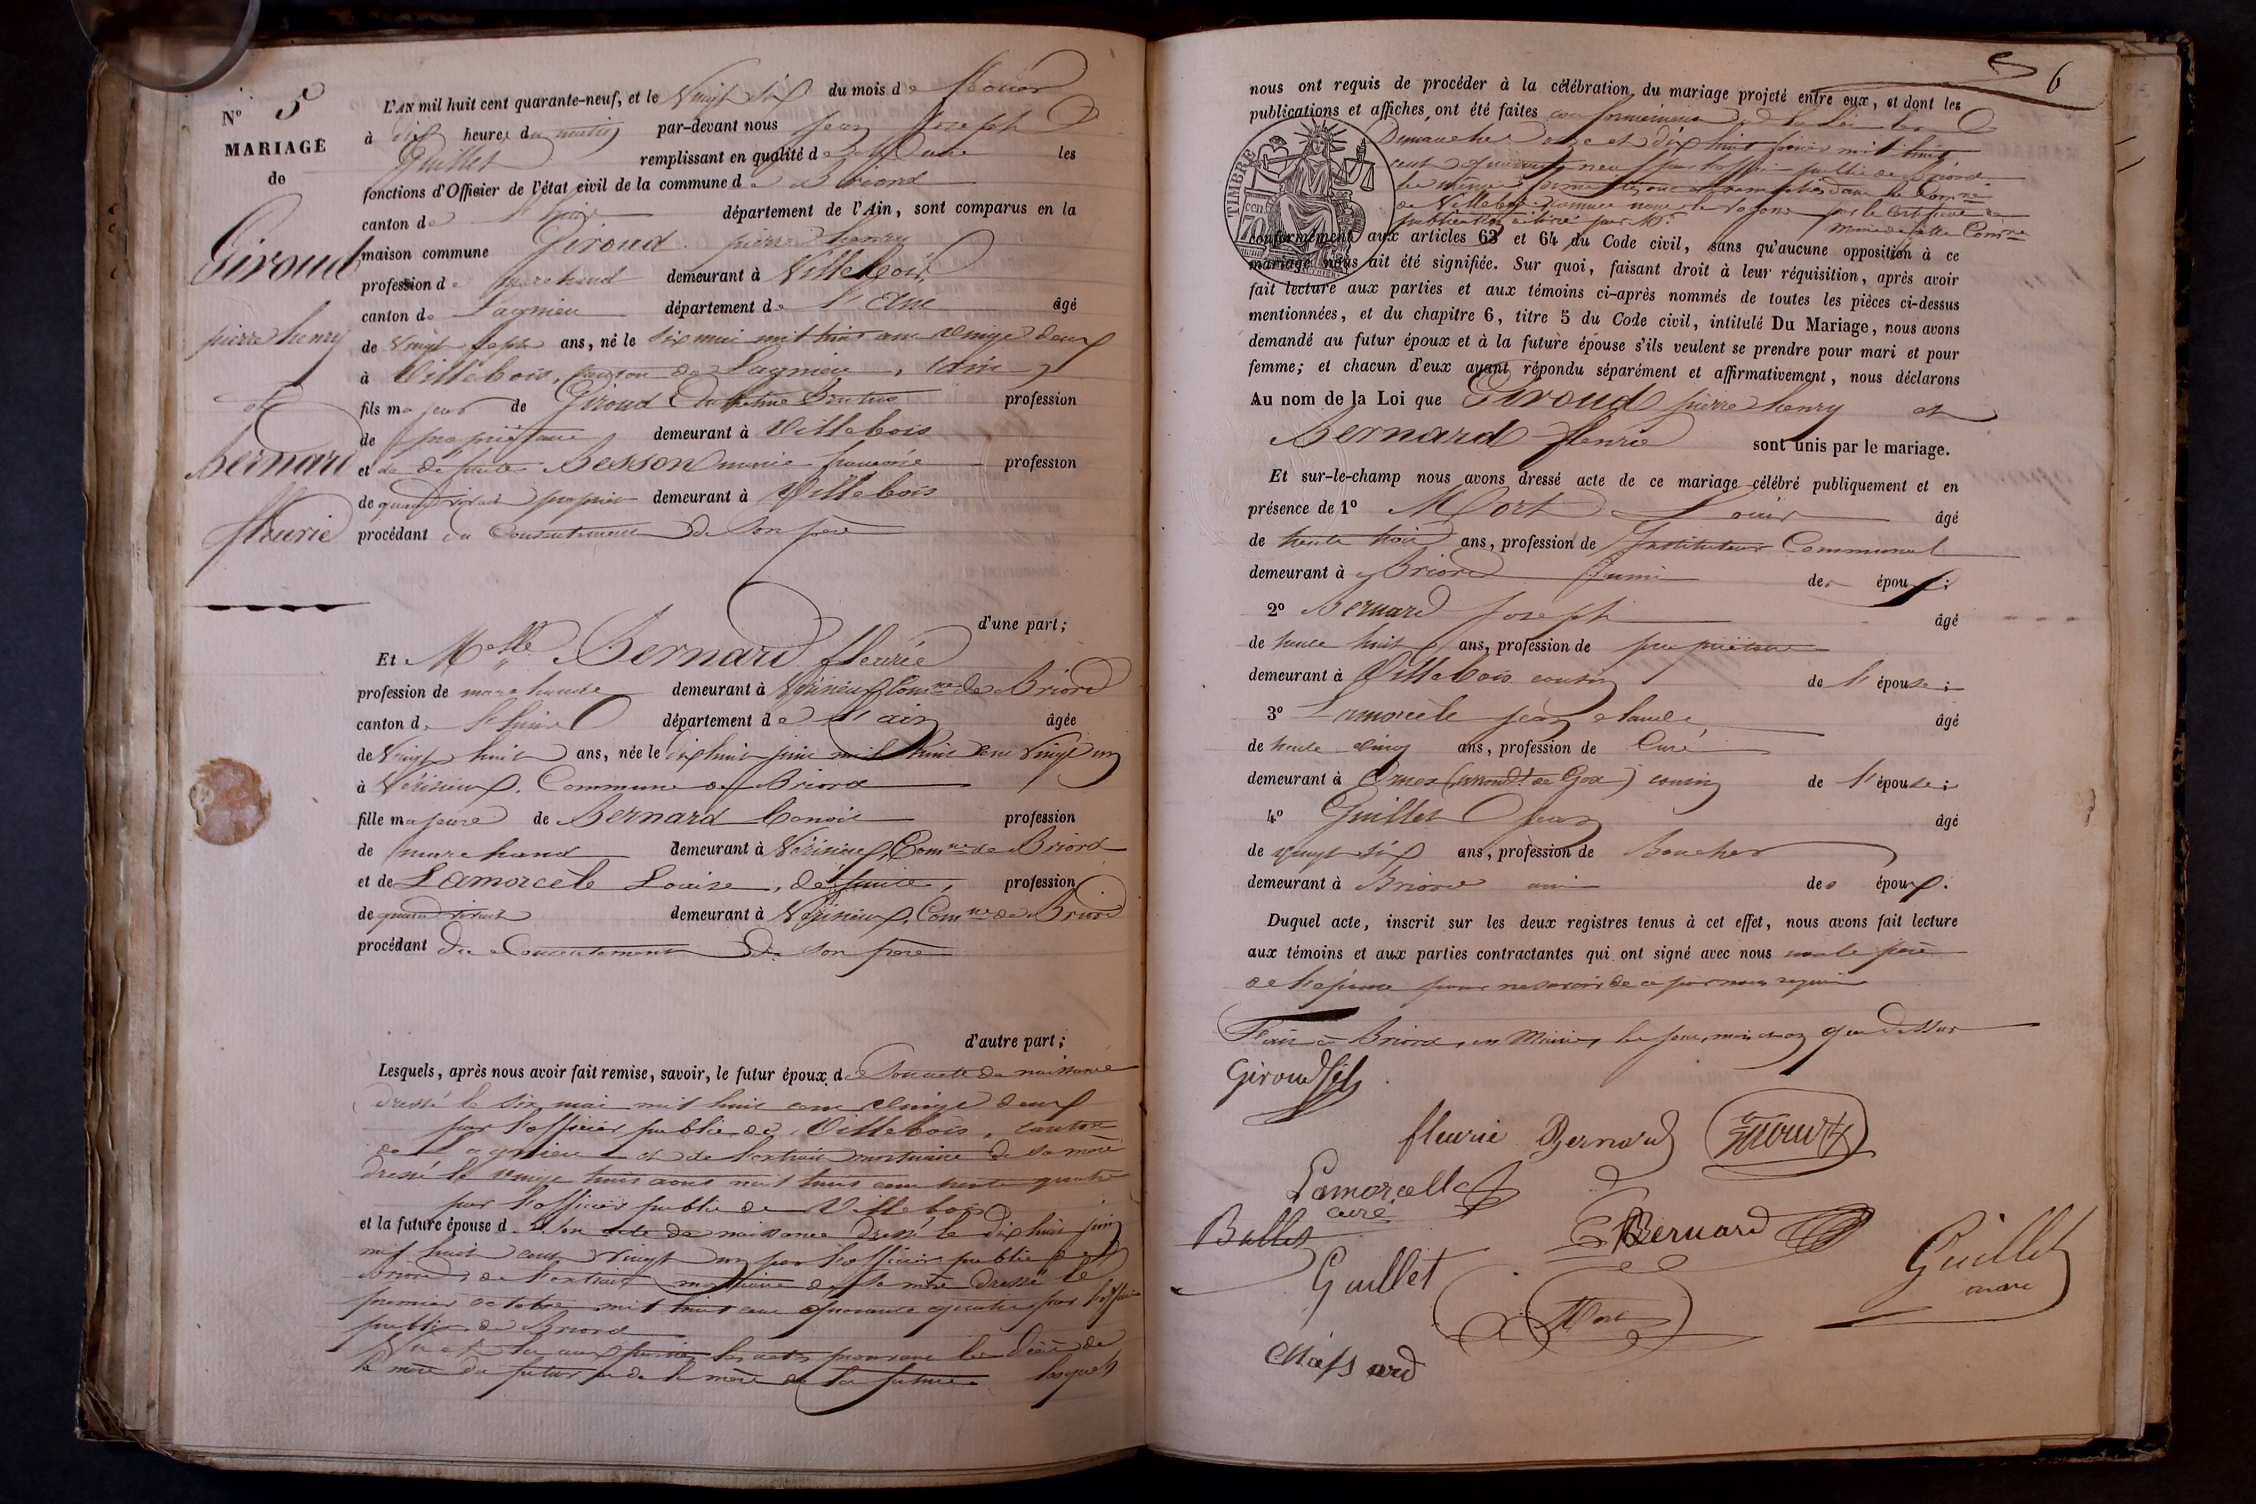 N° 5
MARIAGE
de
Giroud
pierre henry
et
Bernard
fleurie
L'AN mil huit cent quarante-neuf, et le Vingt six du mois de février
à dix heures du matin par-devant nous Jean Joseph
Guillet remplissant en qualité de Maire les
fonctions d'Officier de l'état civil de la commune de Briord
canton de département de l'Ain, sont comparus en la
maison commune Giroud pierre henry
profession de marchand demeurant à Villebois,
canton de Lagnieu département de l'Ain âgé
de Vingt six ans, né le six mai mil huit cent vingt deux
à Villebois, canton de Lagnieu, (ain)
fils majeur de Giroud profession
de propriétaire demeurant à Villebois
et de défunte Besson marie françoise profession
de quand vivait demeurant à Villebois
procédant du Consentement de son père
d'une part;
Et Melle Bernard fleurie
profession de marchande demeurant à Vérisieux Comne de Briord
canton de département de l'ain âgée
de Vingt huit ans, née le dix huit juin mil huit cent vingt un
à Vérisieux, Commune de Briord
fille majeure de Bernard benoit profession
de marchand demeurant à Vérisieux, Comne de Briord
et de Lamorcèle Louise, défunte, profession
de quand vivait demeurant à Vérisieux, Comne de Briord
procédant du Consentement de son père
d'autre part;
Lesquels, après nous avoir fait remise, savoir, le futur époux de son acte de naissance
dressé le six mai mil huit cent vingt deux
par l'officier public de Villebois, canton
de Lagnieu et de l'extrait mortuaire de sa mère
dressé le vingt huit août mil huit cent trente quatre
par l'officier public de Villebois
et la future épouse de son acte de naissance dressé le dix huit juin
mil huit cent vingt un par l'officier public de
Briord, de l'extrait mortuaire de sa mère dressé le
premier octobre mil huit cent quarante quatre par l'officier
public de Briord
les actes prouvant le décès de
la mère du futur et de la mère de la future lesquels
6
nous ont requis de procéder à la célébration du mariage projeté entre eux, et dont les
publications et affiches ont été faites conformément à la loi les
Dimanches onze et dix huit février mil huit
cent quarante neuf par l'officier public de Briord
les mêmes formalités ont été remplies dans la Comne
de Villebois comme nous le voyons par le certificat de
publication délivré par Mr le Maire de cette Comne
TIMBRE
70 cen.
conformément aux articles 63 et 64 du Code civil, sans qu'aucune opposition à ce
mariage nous ait été signifiée. Sur quoi, faisant droit à leur réquisition, après avoir
fait lecture aux parties et aux témoins ci-après nommés de toutes les pièces ci-dessus
mentionnées, et du chapitre 6, titre 5 du Code civil, intitulé Du Mariage, nous avons
demandé au futur époux et à la future épouse s'ils veulent se prendre pour mari et pour
femme; et chacun d'eux ayant répondu séparément et affirmativement, nous déclarons
Au nom de la Loi que Giroud pierre henry et
Bernard fleurie sont unis par le mariage.
Et sur-le-champ nous avons dressé acte de ce mariage célébré publiquement et en
présence de 1° Mort Louis âgé
de trente trois ans, profession de Instituteur Communal
demeurant à Briord ami des époux;
2° Bernard Joseph âgé
de trente huit ans, profession de propriétaire
demeurant à Villebois cousin de l'épouse;
3° Lamorcèle jean claude âgé
de trente cinq ans, profession de Curé
demeurant à Ornex (arrondt de Gex) cousin de l'épouse;
4° Guillet Jean âgé
de vingt six ans, profession de Boucher
demeurant à Briord ami des époux.
Duquel acte, inscrit sur les deux registres tenus à cet effet, nous avons fait lecture
aux témoins et aux parties contractantes qui ont signé avec nous non le père
de l'épouse pour ne savoir de ce par nous requis
Fait à Briord, en Mairie, les jour, mois et an que dessus
Giroud fils
fleurie Bernard
Lamorcelle
curé
Ballet
Bernard
Guillet
Guillet
maire
Mort
Chassard